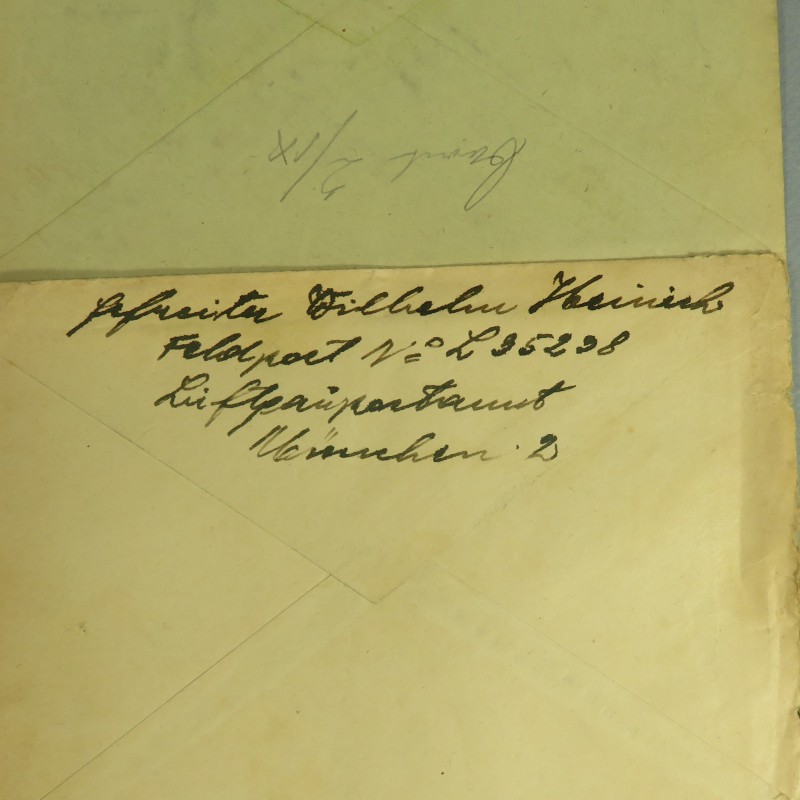 Gefreiter Wilhelm Heinisch
Feldpost Nº L 35238
Luftgaupostamt
München 2